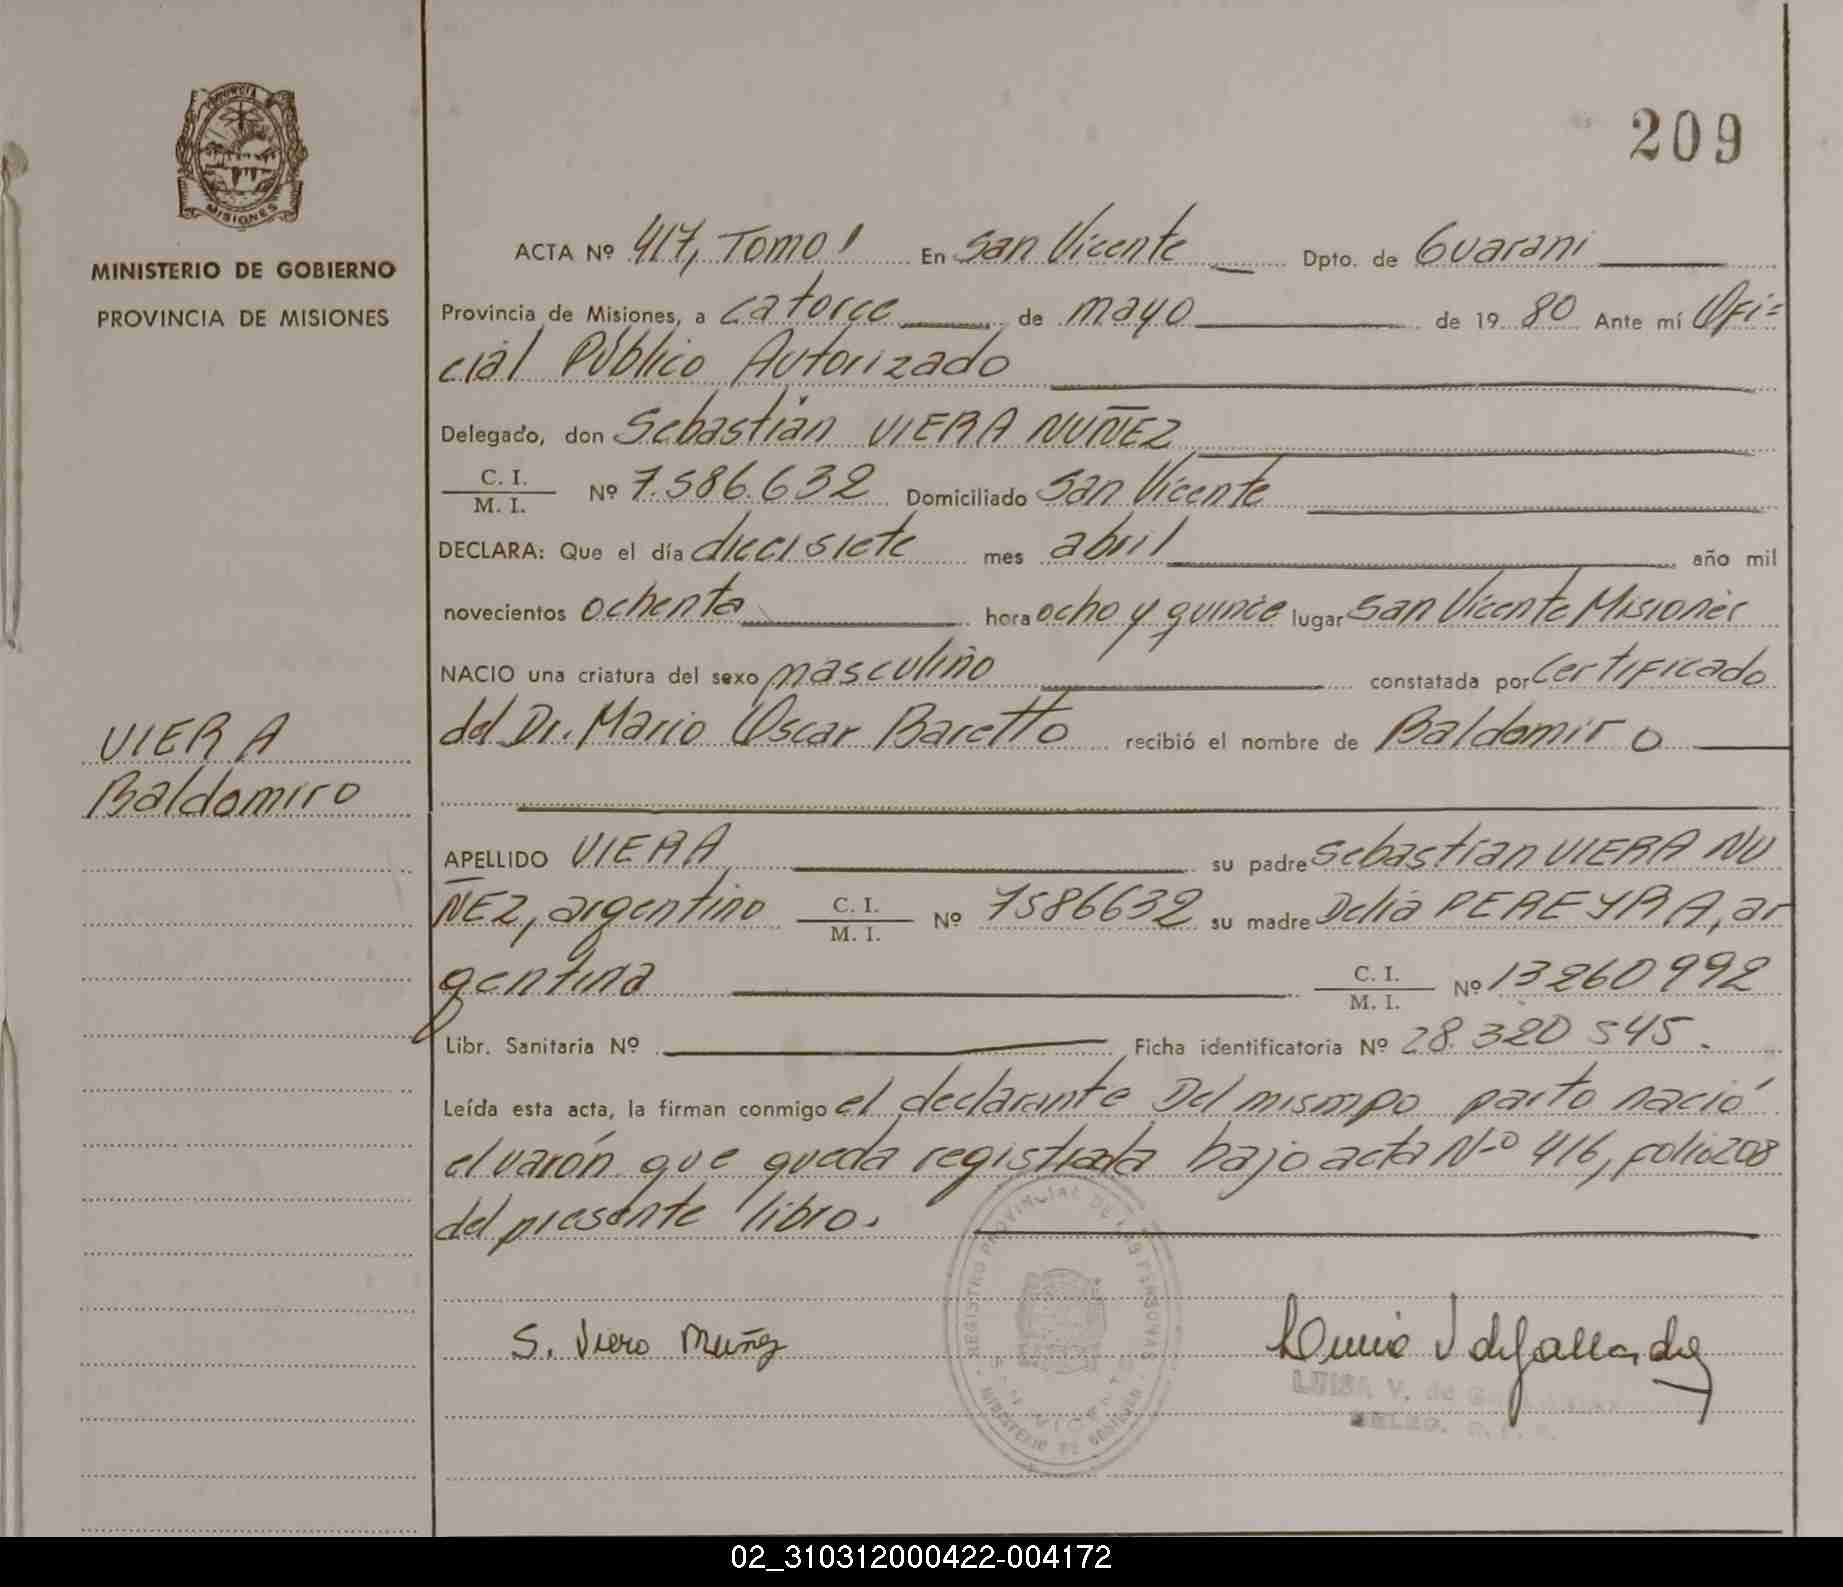 PROVINCIA
MISIONES
MINISTERIO DE GOBIERNO
PROVINCIA DE MISIONES
VIERA
Baldomiro
209
ACTA Nº 417, Tomo I En San Vicente Dpto. de Guarani
Provincia de Misiones, a catorce de mayo de 19 80 Ante mí Ofi=
cial Público Autorizado
Delegado, don Sebastián VIERA NUÑEZ
C. I.
M. I. Nº 7.586.632 Domiciliado San Vicente
DECLARA: Que el día diecisiete mes abril año mil
novecientos ochenta hora ocho y quince lugar San Vicente Misiones
NACIO una criatura del sexo masculino constatada por certificado
del Dr. Mario Oscar Baretto recibió el nombre de Baldomiro
APELLIDO VIERA su padre Sebastian VIERA NU
ÑEZ, argentino C. I.
M. I. Nº 7586632 su madre Delia PEREYRA, ar
gentina C. I.
M. I. Nº 13260992
Libr. Sanitaria Nº Ficha identificatoria Nº 28.320 545.
Leída esta acta, la firman conmigo el declarante Del mismpo parto nació
el varón que queda registrada bajo acta Nº 416, folio 208
del presente libro.
REGISTRO PROVINCIAL DE LAS PERSONAS
MINISTERIO DE GOBIERNO
S. Viero Muñez
LUISA V. de
DELEG. R. P. P.
02_310312000422-004172